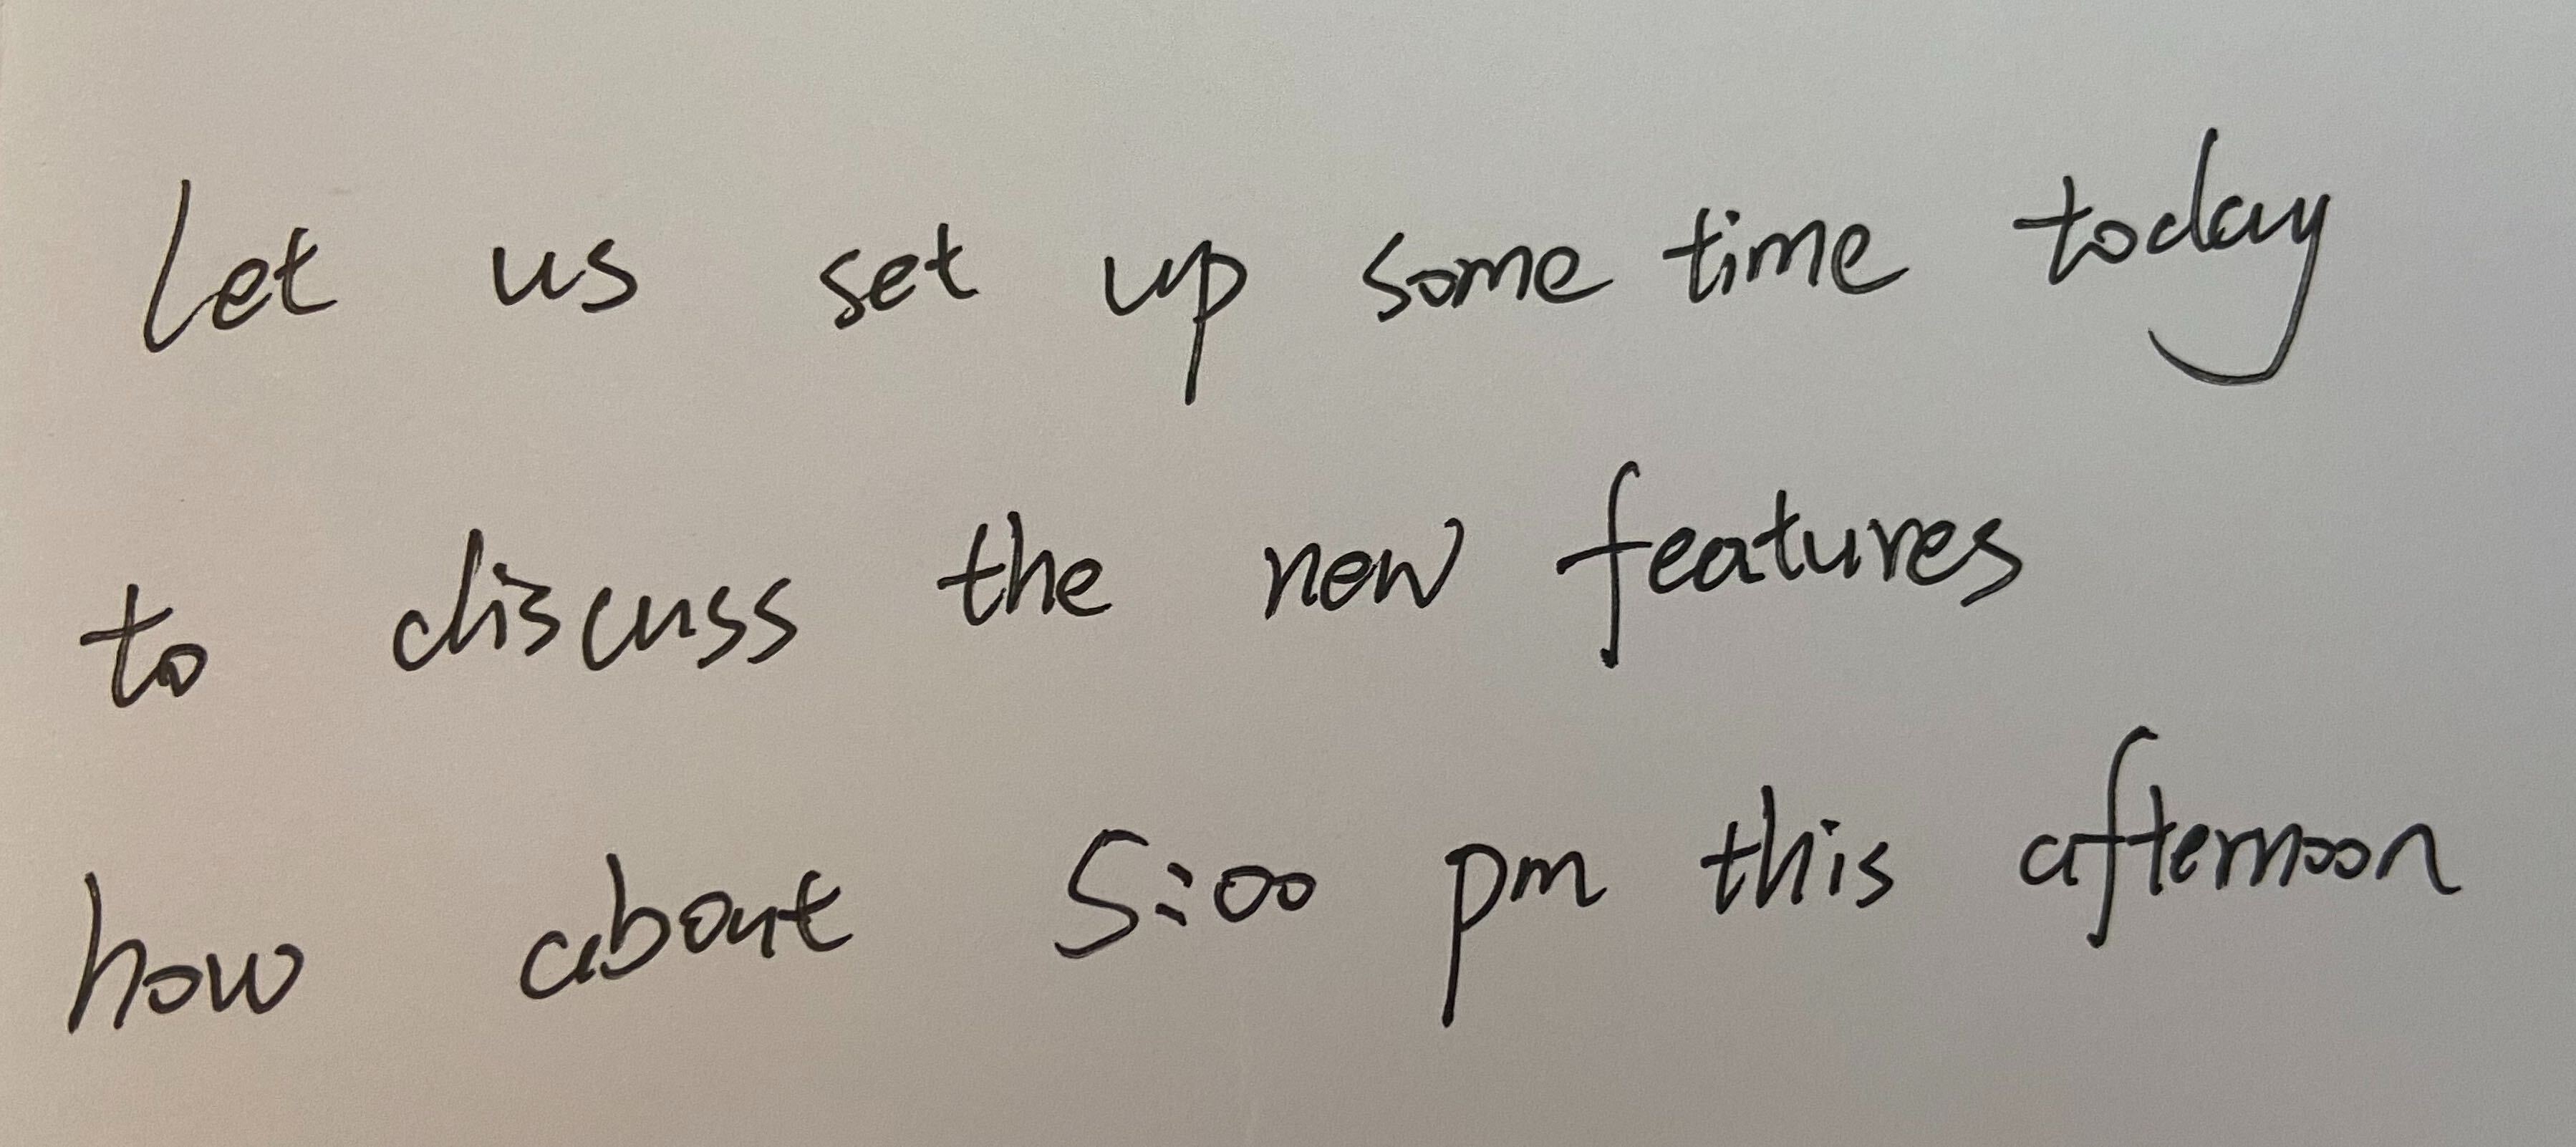 Let us set up some time today
to discuss the new features
how about 5:00 pm this afternoon